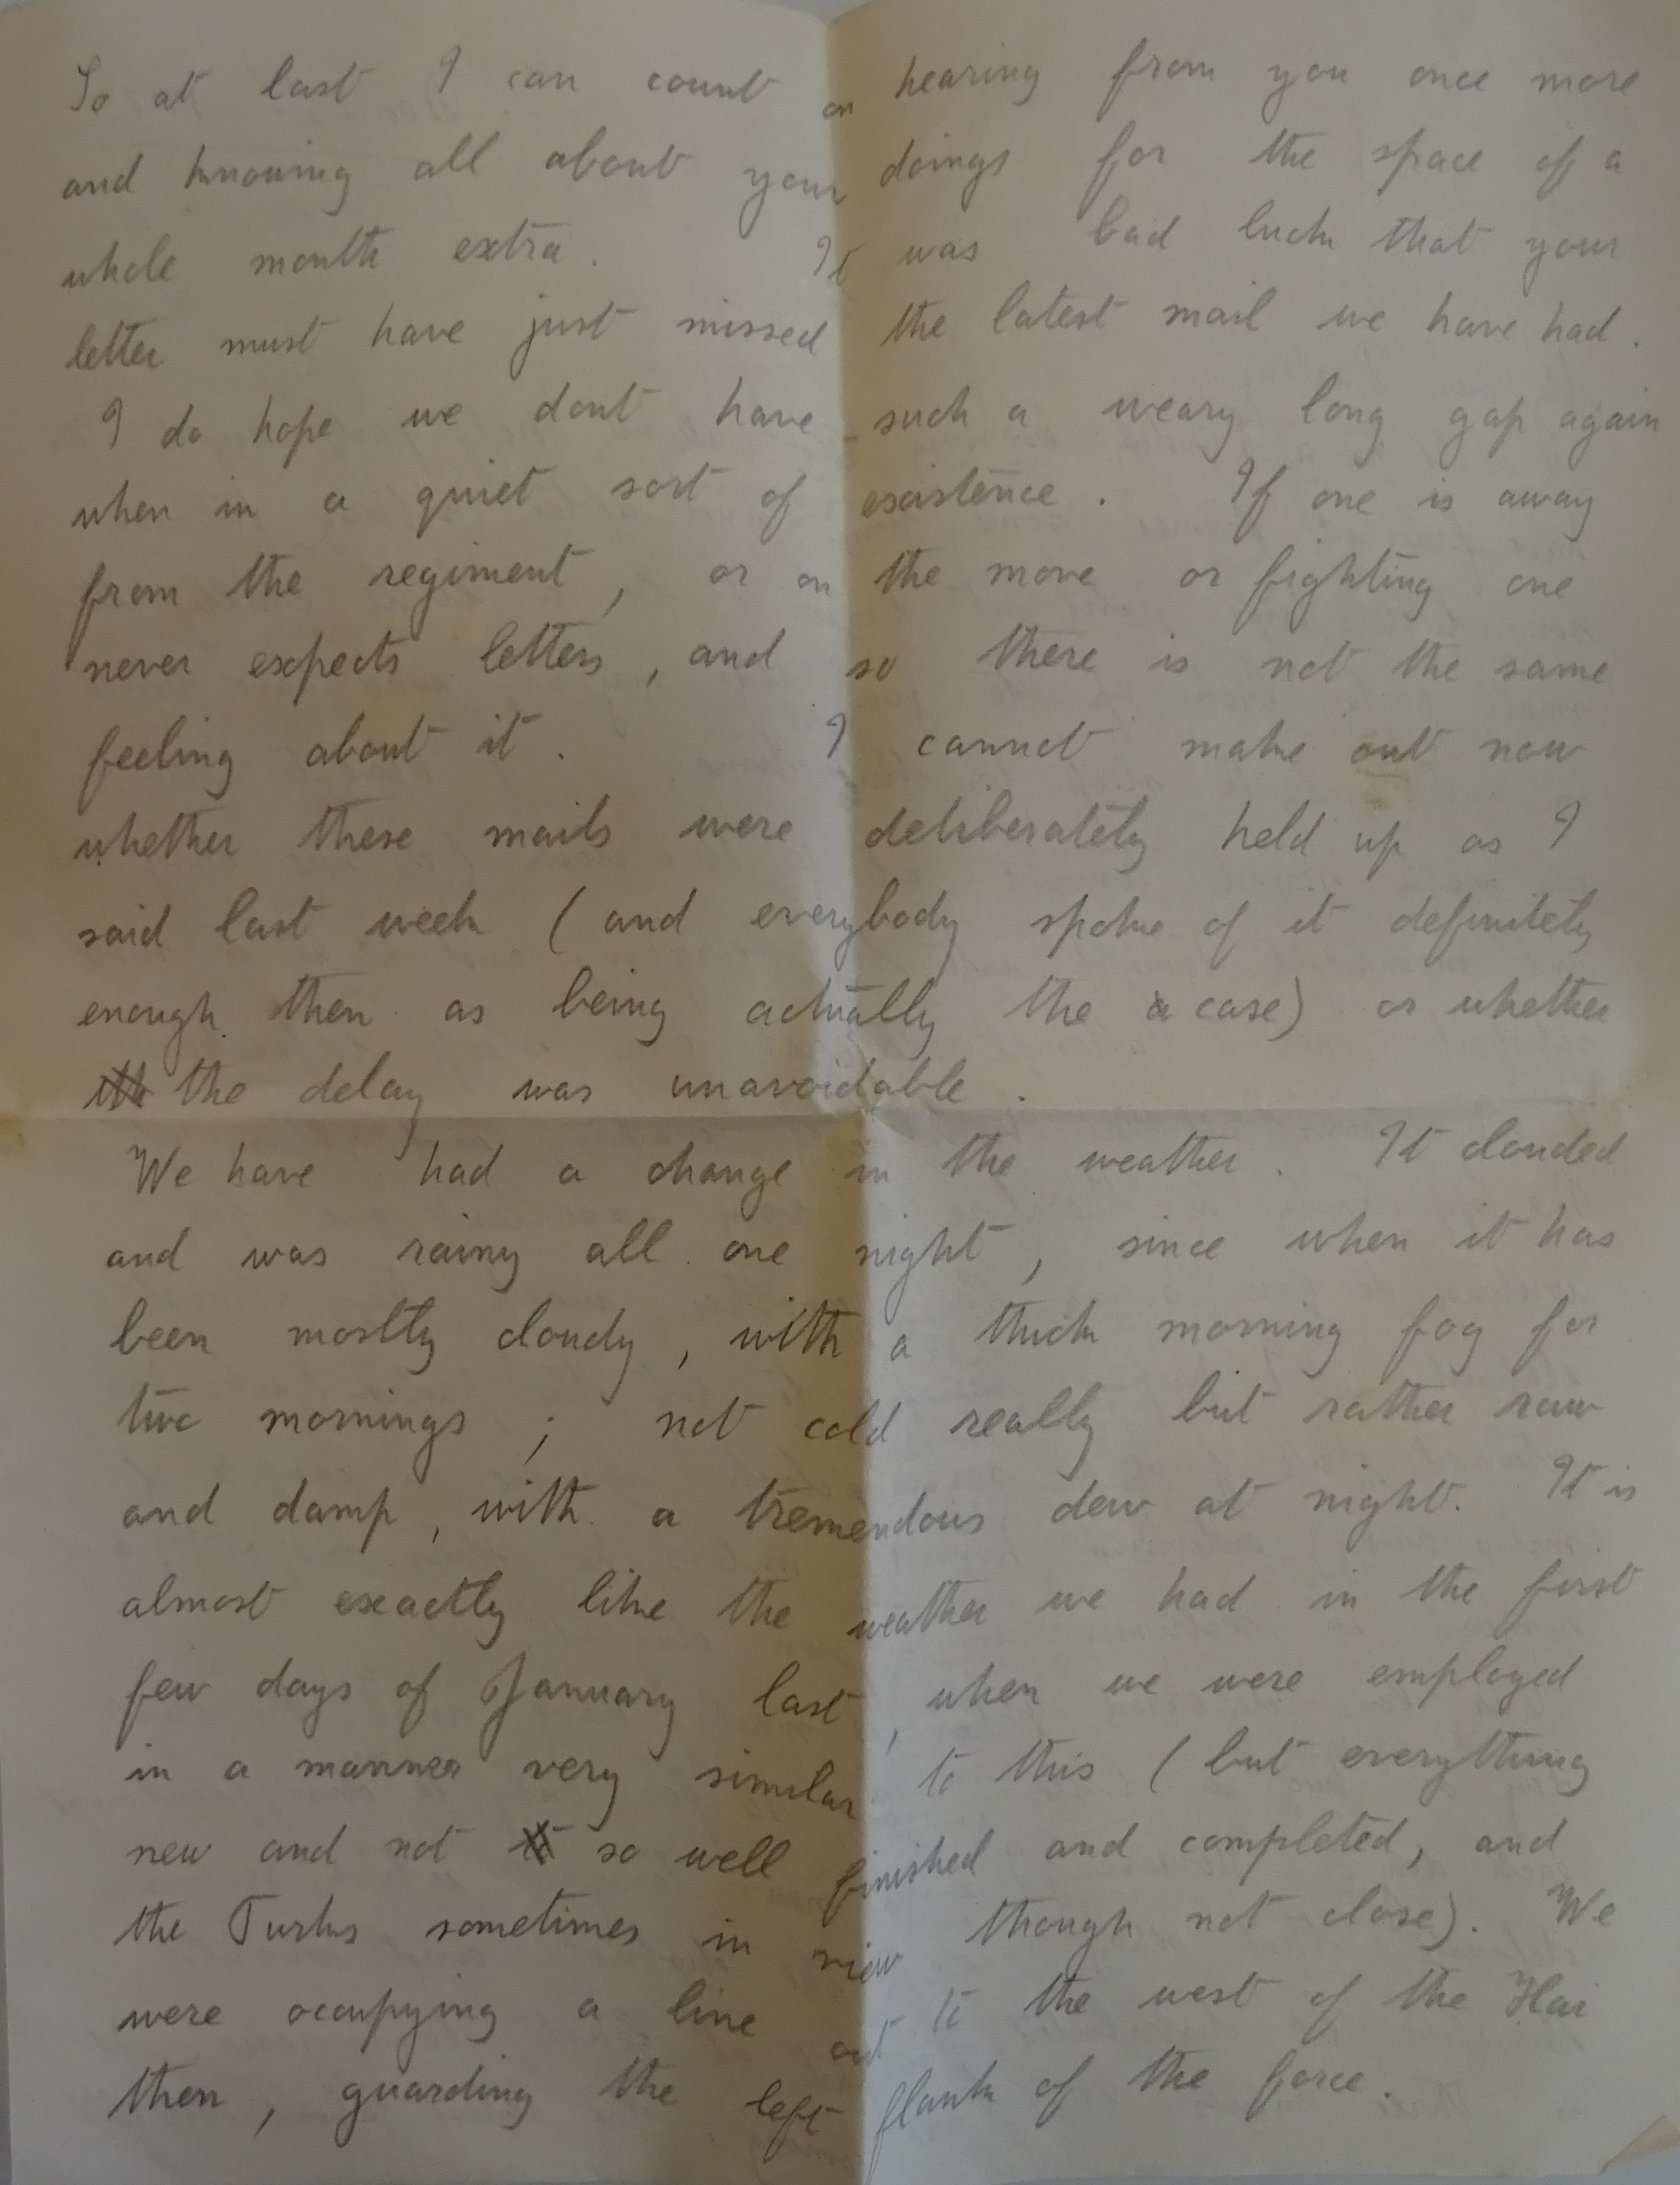 So at last I can count on hearing from you once more
and knowing all about your doings for the space of a
whole month extra. It was bad luck that your
letter must have just missed the latest mail we have had.
I do hope we dont have such a weary long gap again
when in a quiet sort of existence. If one is away
from the regiment, or on the move or fighting one
never expects letters, and so there is not the same
feeling about it. I cannot make out now
whether these mails were deliberately held up as I
said last week (and everybody spoke of it definitely
enough then as being actually the case) or whether
the delay was unavoidable.
We have had a change in the weather. It clouded
and was rainy all one night, since when it has
been mostly cloudy, with a thick morning fog for
two mornings; not cold really but rather raw
and damp, with a tremendous dew at night. It is
almost exactly like the weather we had in the first
few days of January last, when we were employed
in a manner very similar to this (but everything
new and not so well finished and completed, and
the Turks sometimes in view though not close). We
were occupying a line out to the west of the Hai
then, guarding the left flank of the force.